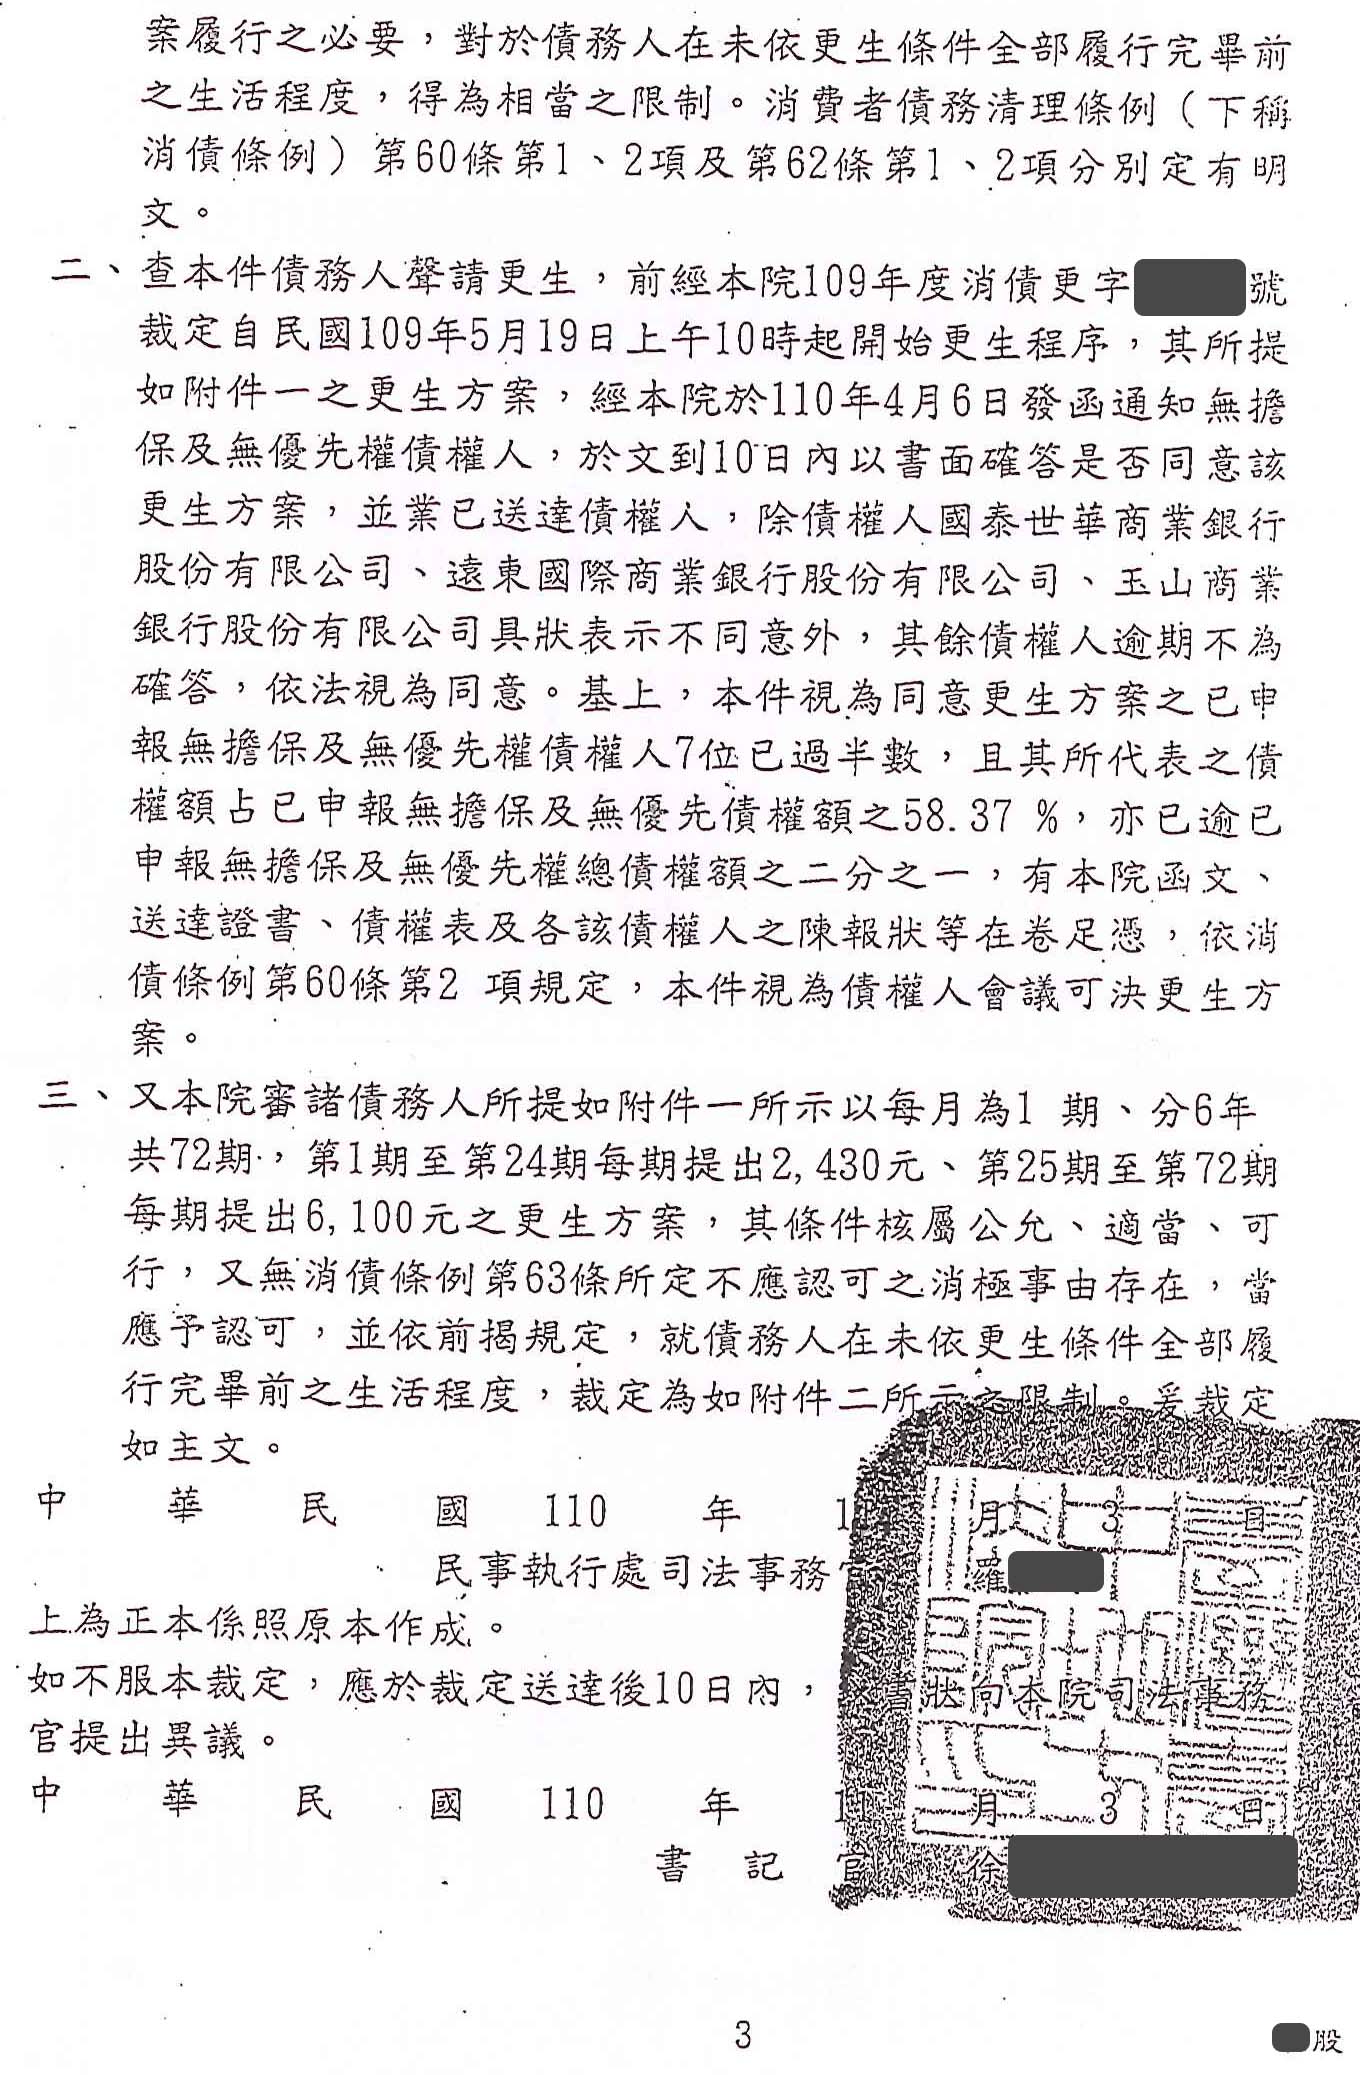 案履行之必要，對於債務人在未依更生條件全部履行完畢前
之生活程度，得為相當之限制。消費者債務清理條例（下稱
消債條例）第60條第1、2項及第62條第1、2項分別定有明
文。
二、查本件債務人聲請更生，前經本院109年度消債更字 號
裁定自民國109年5月19日上午10時起開始更生程序，其所提
如附件一之更生方案，經本院於110年4月6日發函通知無擔
保及無優先權債權人，於文到10日內以書面確答是否同意該
更生方案，並業已送達債權人，除債權人國泰世華商業銀行
股份有限公司、遠東國際商業銀行股份有限公司、玉山商業
銀行股份有限公司具狀表示不同意外，其餘債權人逾期不為
確答，依法視為同意。基上，本件視為同意更生方案之已申
報無擔保及無優先權債權人7位已過半數，且其所代表之債
權額占已申報無擔保及無優先債權額之58.37 %，亦已逾已
申報無擔保及無優先權總債權額之二分之一，有本院函文、
送達證書、債權表及各該債權人之陳報狀等在卷足憑，依消
債條例第60條第2 項規定，本件視為債權人會議可決更生方
案。
三、又本院審諸債務人所提如附件一所示以每月為1 期、分6年
共72期，第1期至第24期每期提出2,430元、第25期至第72期
每期提出6,100元之更生方案，其條件核屬公允、適當、可
行，又無消債條例第63條所定不應認可之消極事由存在，當
應予認可，並依前揭規定，就債務人在未依更生條件全部履
行完畢前之生活程度，裁定為如附件二所示之限制。爰裁定
如主文。
中 華 民 國 110 年 11 月 3 日
民事執行處司法事務官 羅
上為正本係照原本作成。
如不服本裁定，應於裁定送達後10日內，以書狀向本院司法事務
官提出異議。
中 華 民 國 110 年 11 月 3 日
書 記 官 徐
3
股